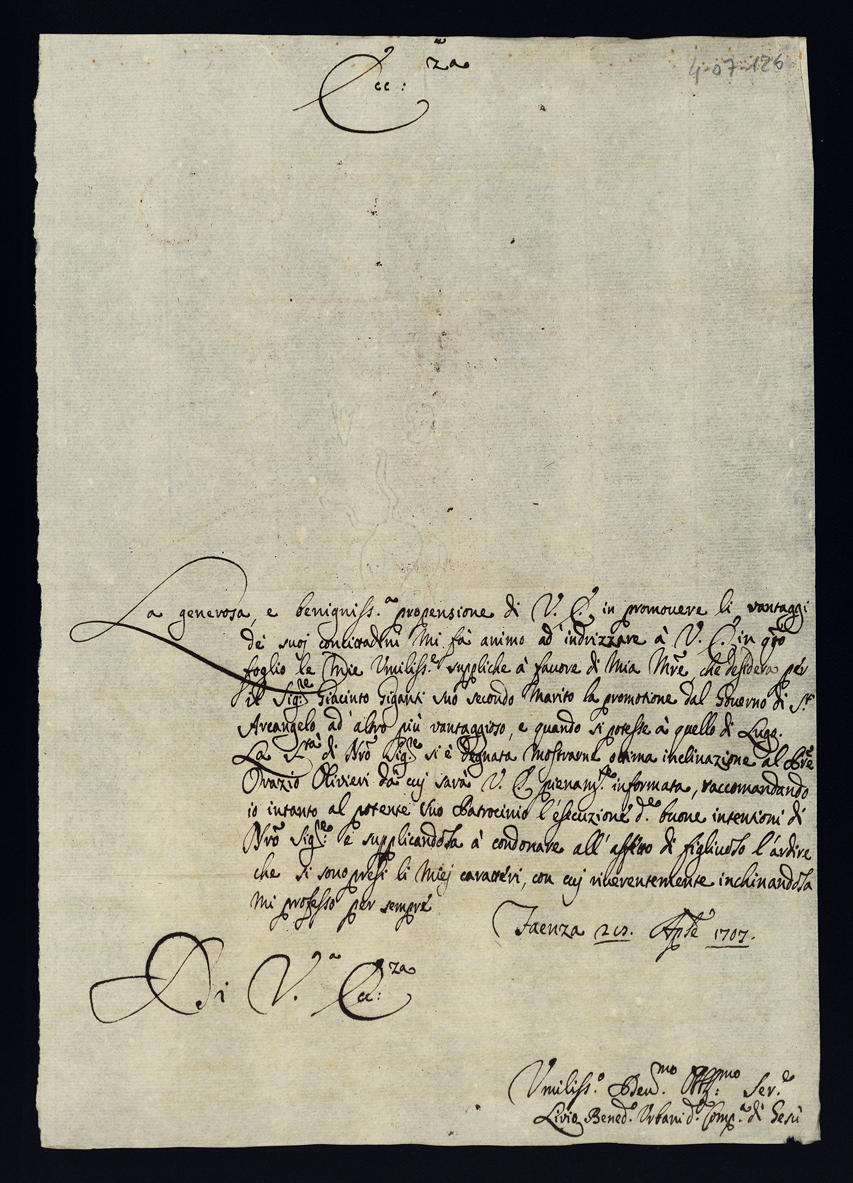 4-07-126
Ecc:za
La generosa, e benigniss.a propensione di V. E. in promovere li vantaggi
de' suoj concittadini mi fà animo ad' indrizzare à V. E. in qto
foglio le mie Umiliss.e suppliche à favore di Mia Mre, che desidera per
il Sigre Giacinto Giganti suo secondo Marito la promotione dal Governo di S.
Arcangelo ad' altro più vantaggioso, e quando si potesse à quello di Lugo.
La Stà di Nro Sigre si è degnata mostrarne ottima inclinazione al Pre
Orazio Olivieri da cuj sarà V. E. pienam.te informata, raccomandando
io intanto al potente suo Patrocinio l'esecuzione d.e buone intensioni di
Nro Sigre: e supplicandola à condonare all' affetto di figliuolo l'ardire
che si sono presi li miej caratteri, con cuj riverentemente inchinandola
mi professo per sempre
Faenza Aple 1707.
Di V.a Ecc:za
Umiliss.o Dev.mo Obb:mo Ser.e
Livio Bened.o Urbani d.a Comp.a di Gesù